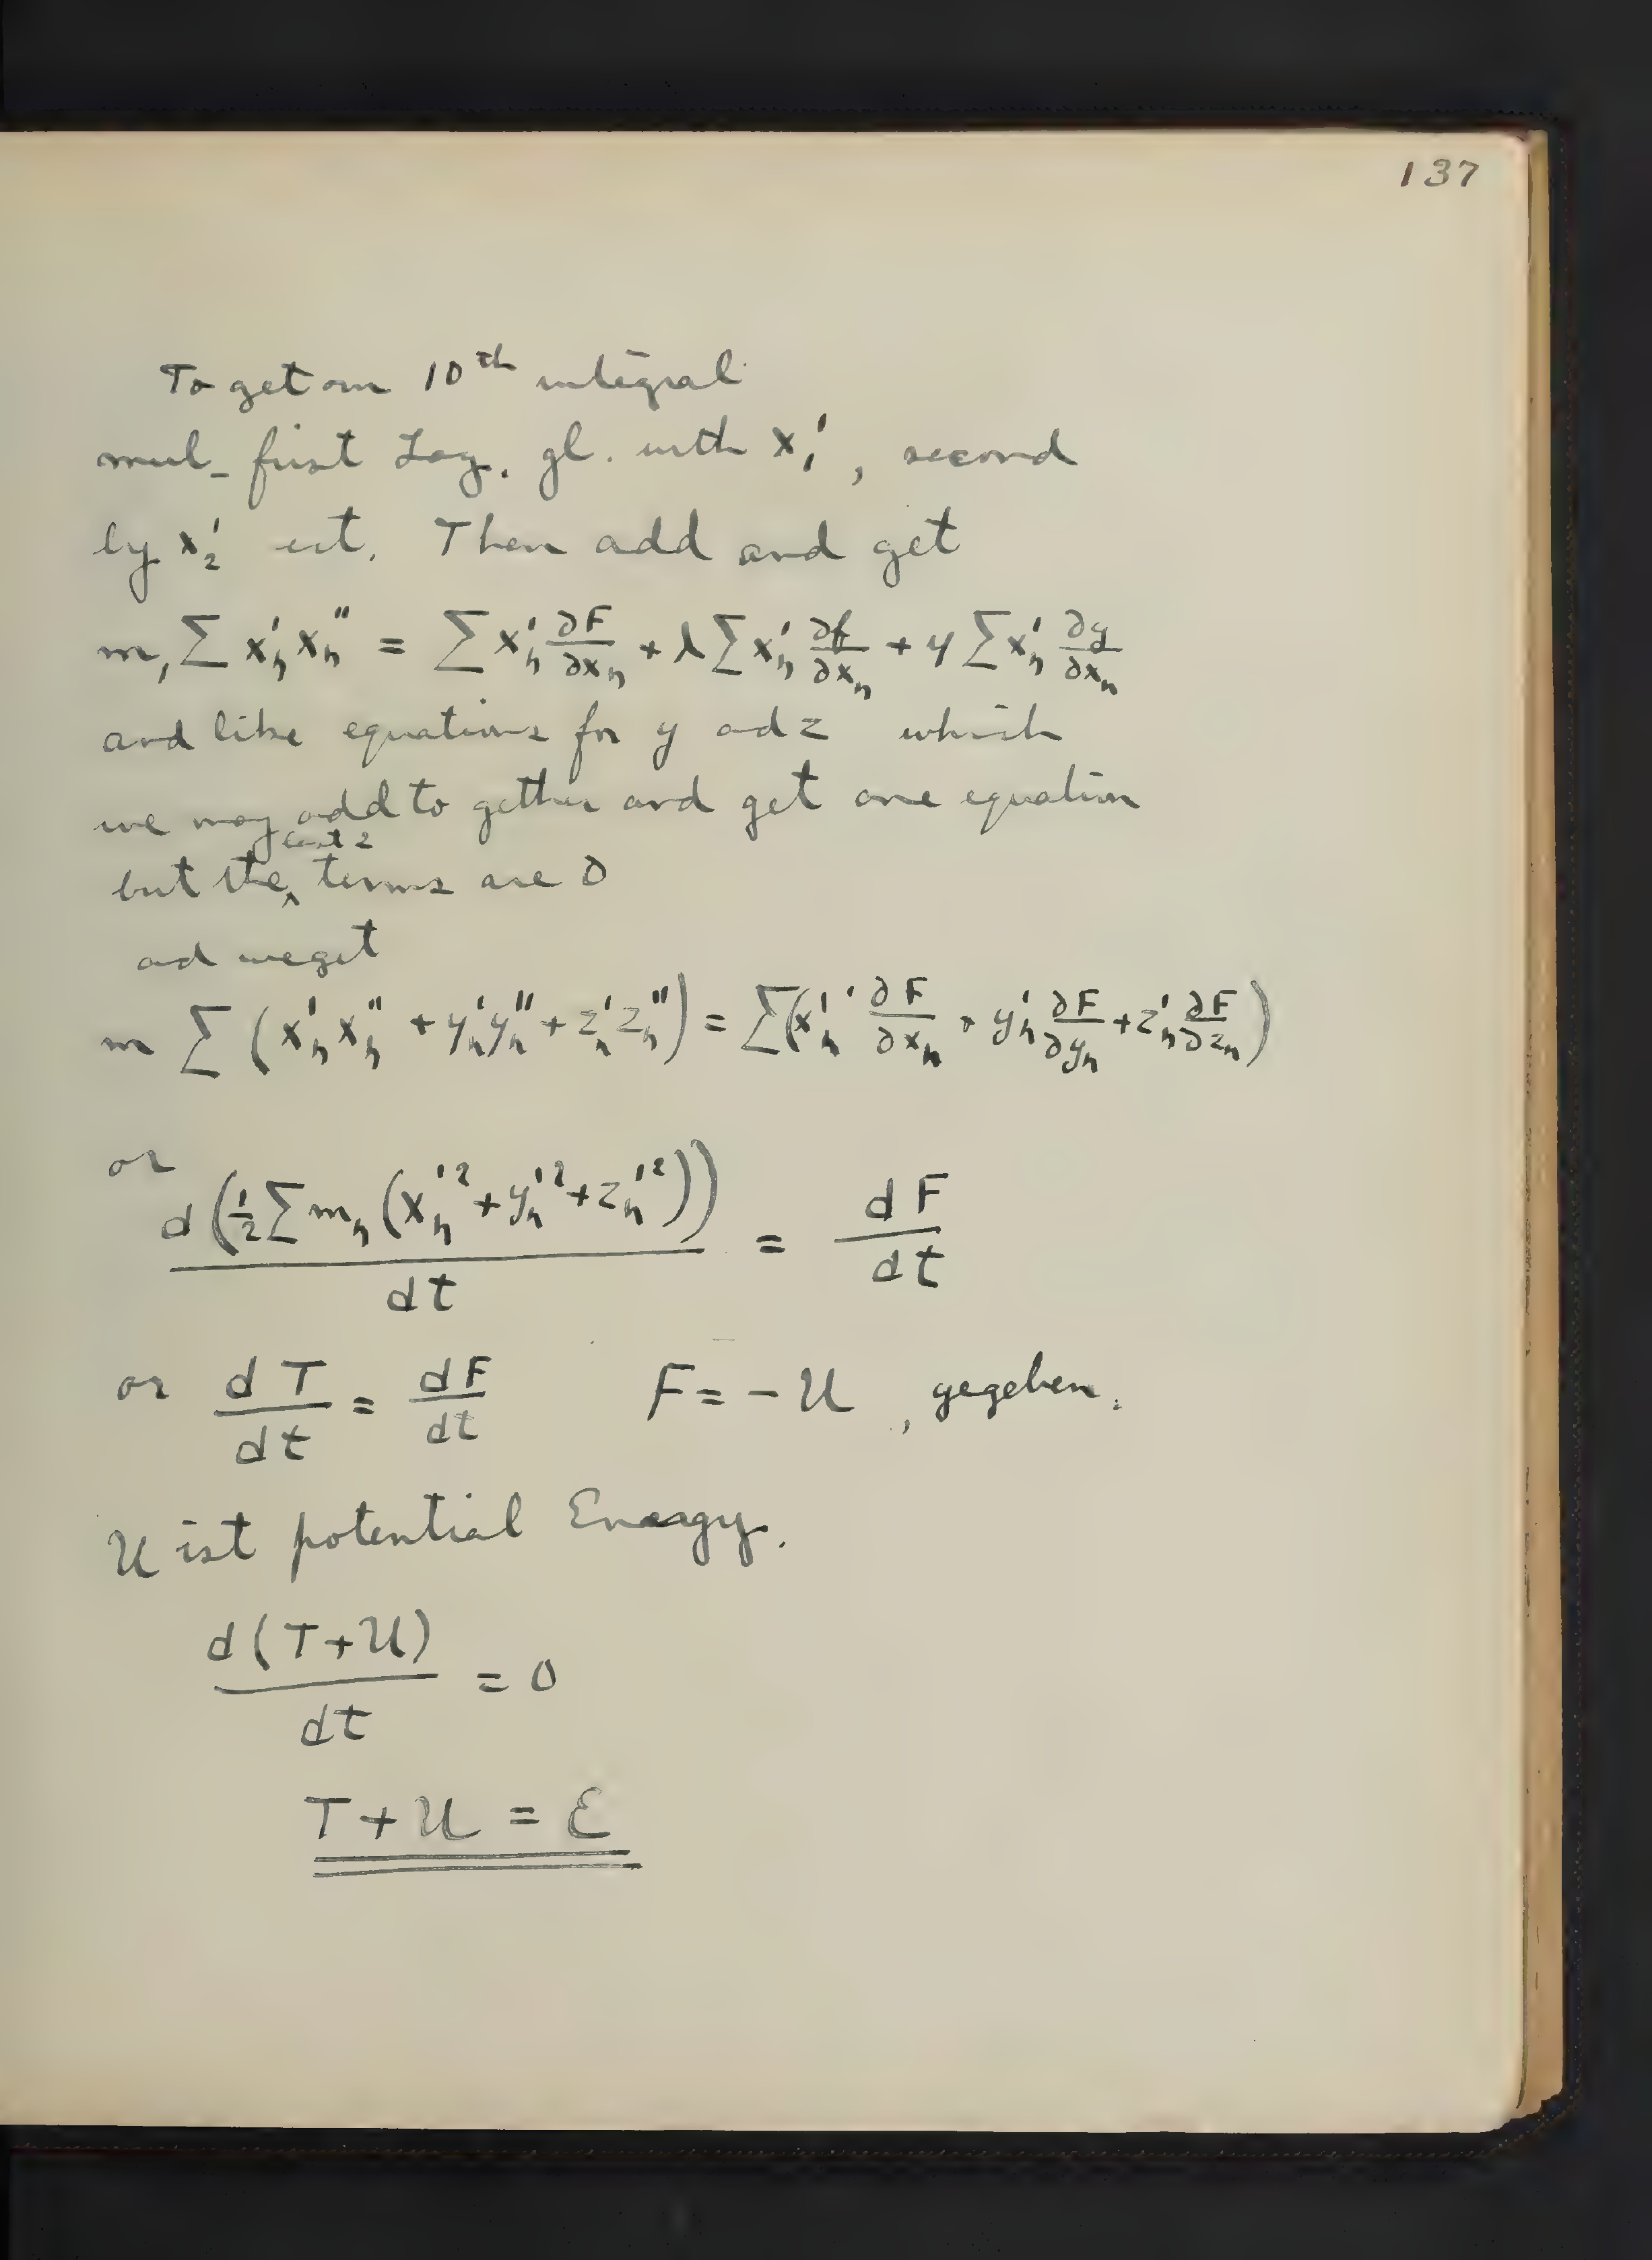 137
To get our 10th integral
mul- first Lag. gl. with x₁', second
by x₂' ect. Then add and get
m₁ ∑ xₙ' xₙ'' = ∑ xₙ' ∂F/∂xₙ + λ ∑ xₙ' ∂f/∂xₙ + y ∑ xₙ' ∂g/∂xₙ
and like equations for y ad z which
we may add to gether and get one equation
last 2
but the ‸ terms are 0
ad we get
m ∑ (xₙ' xₙ'' + yₙ' yₙ'' + zₙ' zₙ'') = ∑ (xₙ' ∂F/∂xₙ + yₙ' ∂F/∂yₙ + zₙ' ∂F/∂zₙ)
or
d(½ ∑ mₙ (xₙ'² + yₙ'² + zₙ'²))/dt = dF/dt
or dT/dt = dF/dt F = - U , gegeben.
U ist potential Energy.
d(T+U)/dt = 0
T + U = E